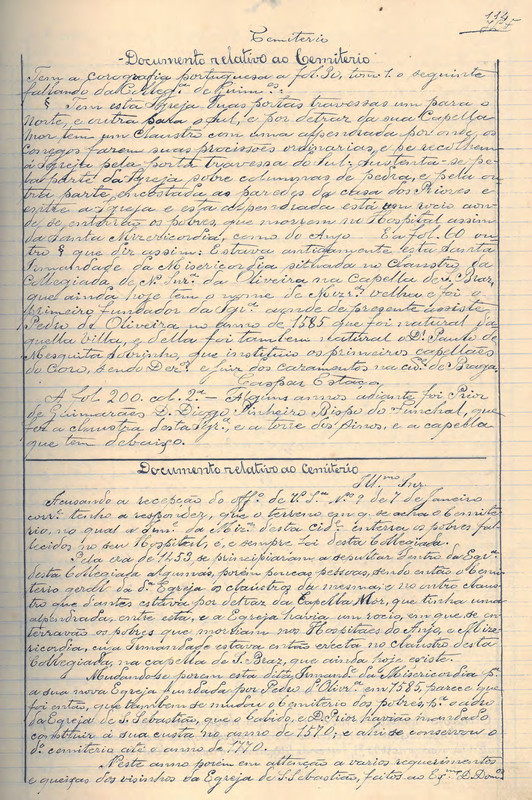 Cemiterio
Documento relativo ao Cemiterio
Tem a corografia portugueza a fol. 50, tom. 1. o seguinte
fallando da Colleg.ª de Guim.es:
§ Tem esta Igreja duas portas travessas um para o
Norte, e outra para o sul, e por detraz da sua Capella
Mor, tem um Claustro com uma alpendrada por onde os
Conegos fazem suas procissões ordinarias, e se recolhem
á Igreja pela porta travessa do Sul, sustenta-se pe-
la parte da Igreja sobre columnas de pedra, e pela ou-
tra parte, encostada as paredes da casa dos Priores e
entre a Igreja e esta alpendrada está um rocio aon-
de se enterrão os pobres, que morrem no Hospital assim
da Santa Mizericordia, como do Anjo. E a fol. 60 ou-
tro § que diz assim: Estava antigamente esta Santa
Irmandade da Misericordia situada no Claustro da
Collegiada de N. Snr.ª da Oliveira na Capella de S. Braz,
que ainda hoje tem o nome de Mizr.ª velha e foi o
primeiro fundador da Igr.ª aonde de presente assiste
Pedro de Oliveira no anno de 1585 que foi natural da-
quella villa, e della foi tambem natural o Dr. Paulo de
Mesquita Sobrinho, que instituio os primeiros capellães
do Coro, sendo Dez.or e juiz dos cazamentos na cid.e de Braga.
Gaspar Estaço
A fol 200. col. 2.ª - Alguns annos adiante foi Prior
de Guimarães D. Diogo Pinheiro Bispo do Funchal, que
fez a claustra desta Igr.ª, e a torre dos sinos, e a capella
que tem debaixo.
Documento relativo ao Cemiterio
Ill.mo Snr.
Acusando a recepção do off.º de V.ª S.ª N.º 9 de 7 de Janeiro
corr.e tenho a responder, que o terreno em q. se acha o Cemite-
rio, no qual a Irm.e da Miz.ª desta Cid.e interra os pobres fal-
lecidos no seu Hospital, é, e sempre foi desta Collegiada.
Pela era de 1453, se principiaram a sepultar dentro da Egr.ª
desta Collegiada algumas, porem poucas pessoas, sendo então o Cemi-
terio geral da d.ª Egreja os claustros da mesma, e no outro claus-
tro que dantes estava por detraz da Capella Mór, que tinha uma
alpendrada, entre esta, e a Egreja havia um rocio, em que se en-
terravão os pobres que morriam nos Hospitaes do Anjo, e Mise-
ricordia, cuja Irmandade estava então erecta no Claustro desta
Collegiada, na capella de S. Braz, que ainda hoje existe.
Mudando-se porem esta dita Irmand.e da Misericordia p.ª
a sua nova Egreja fundada por Pedro d'Olivr.ª em 1585, parece que
foi então, que tambem se mudou o Cemiterio dos pobres p.ª o adro
da Egreja de S. Sebastião, que o Cabido, e D. Prior havião mandado
construir á sua custa no anno de 1570, e ahi se conservou o
d.º cemiterio até o anno de 1770.
Neste anno porém em attenção a varios requerimentos
e queixas dos visinhos da Egreja de S. Sebastião, feitos ao Ex.mo D. Dom.os